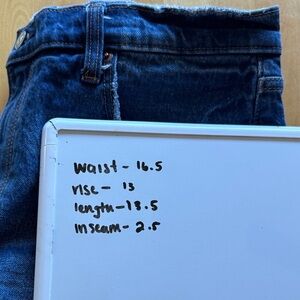 waist - 16.5
rise - 13
length - 13.5
inseam - 2.5